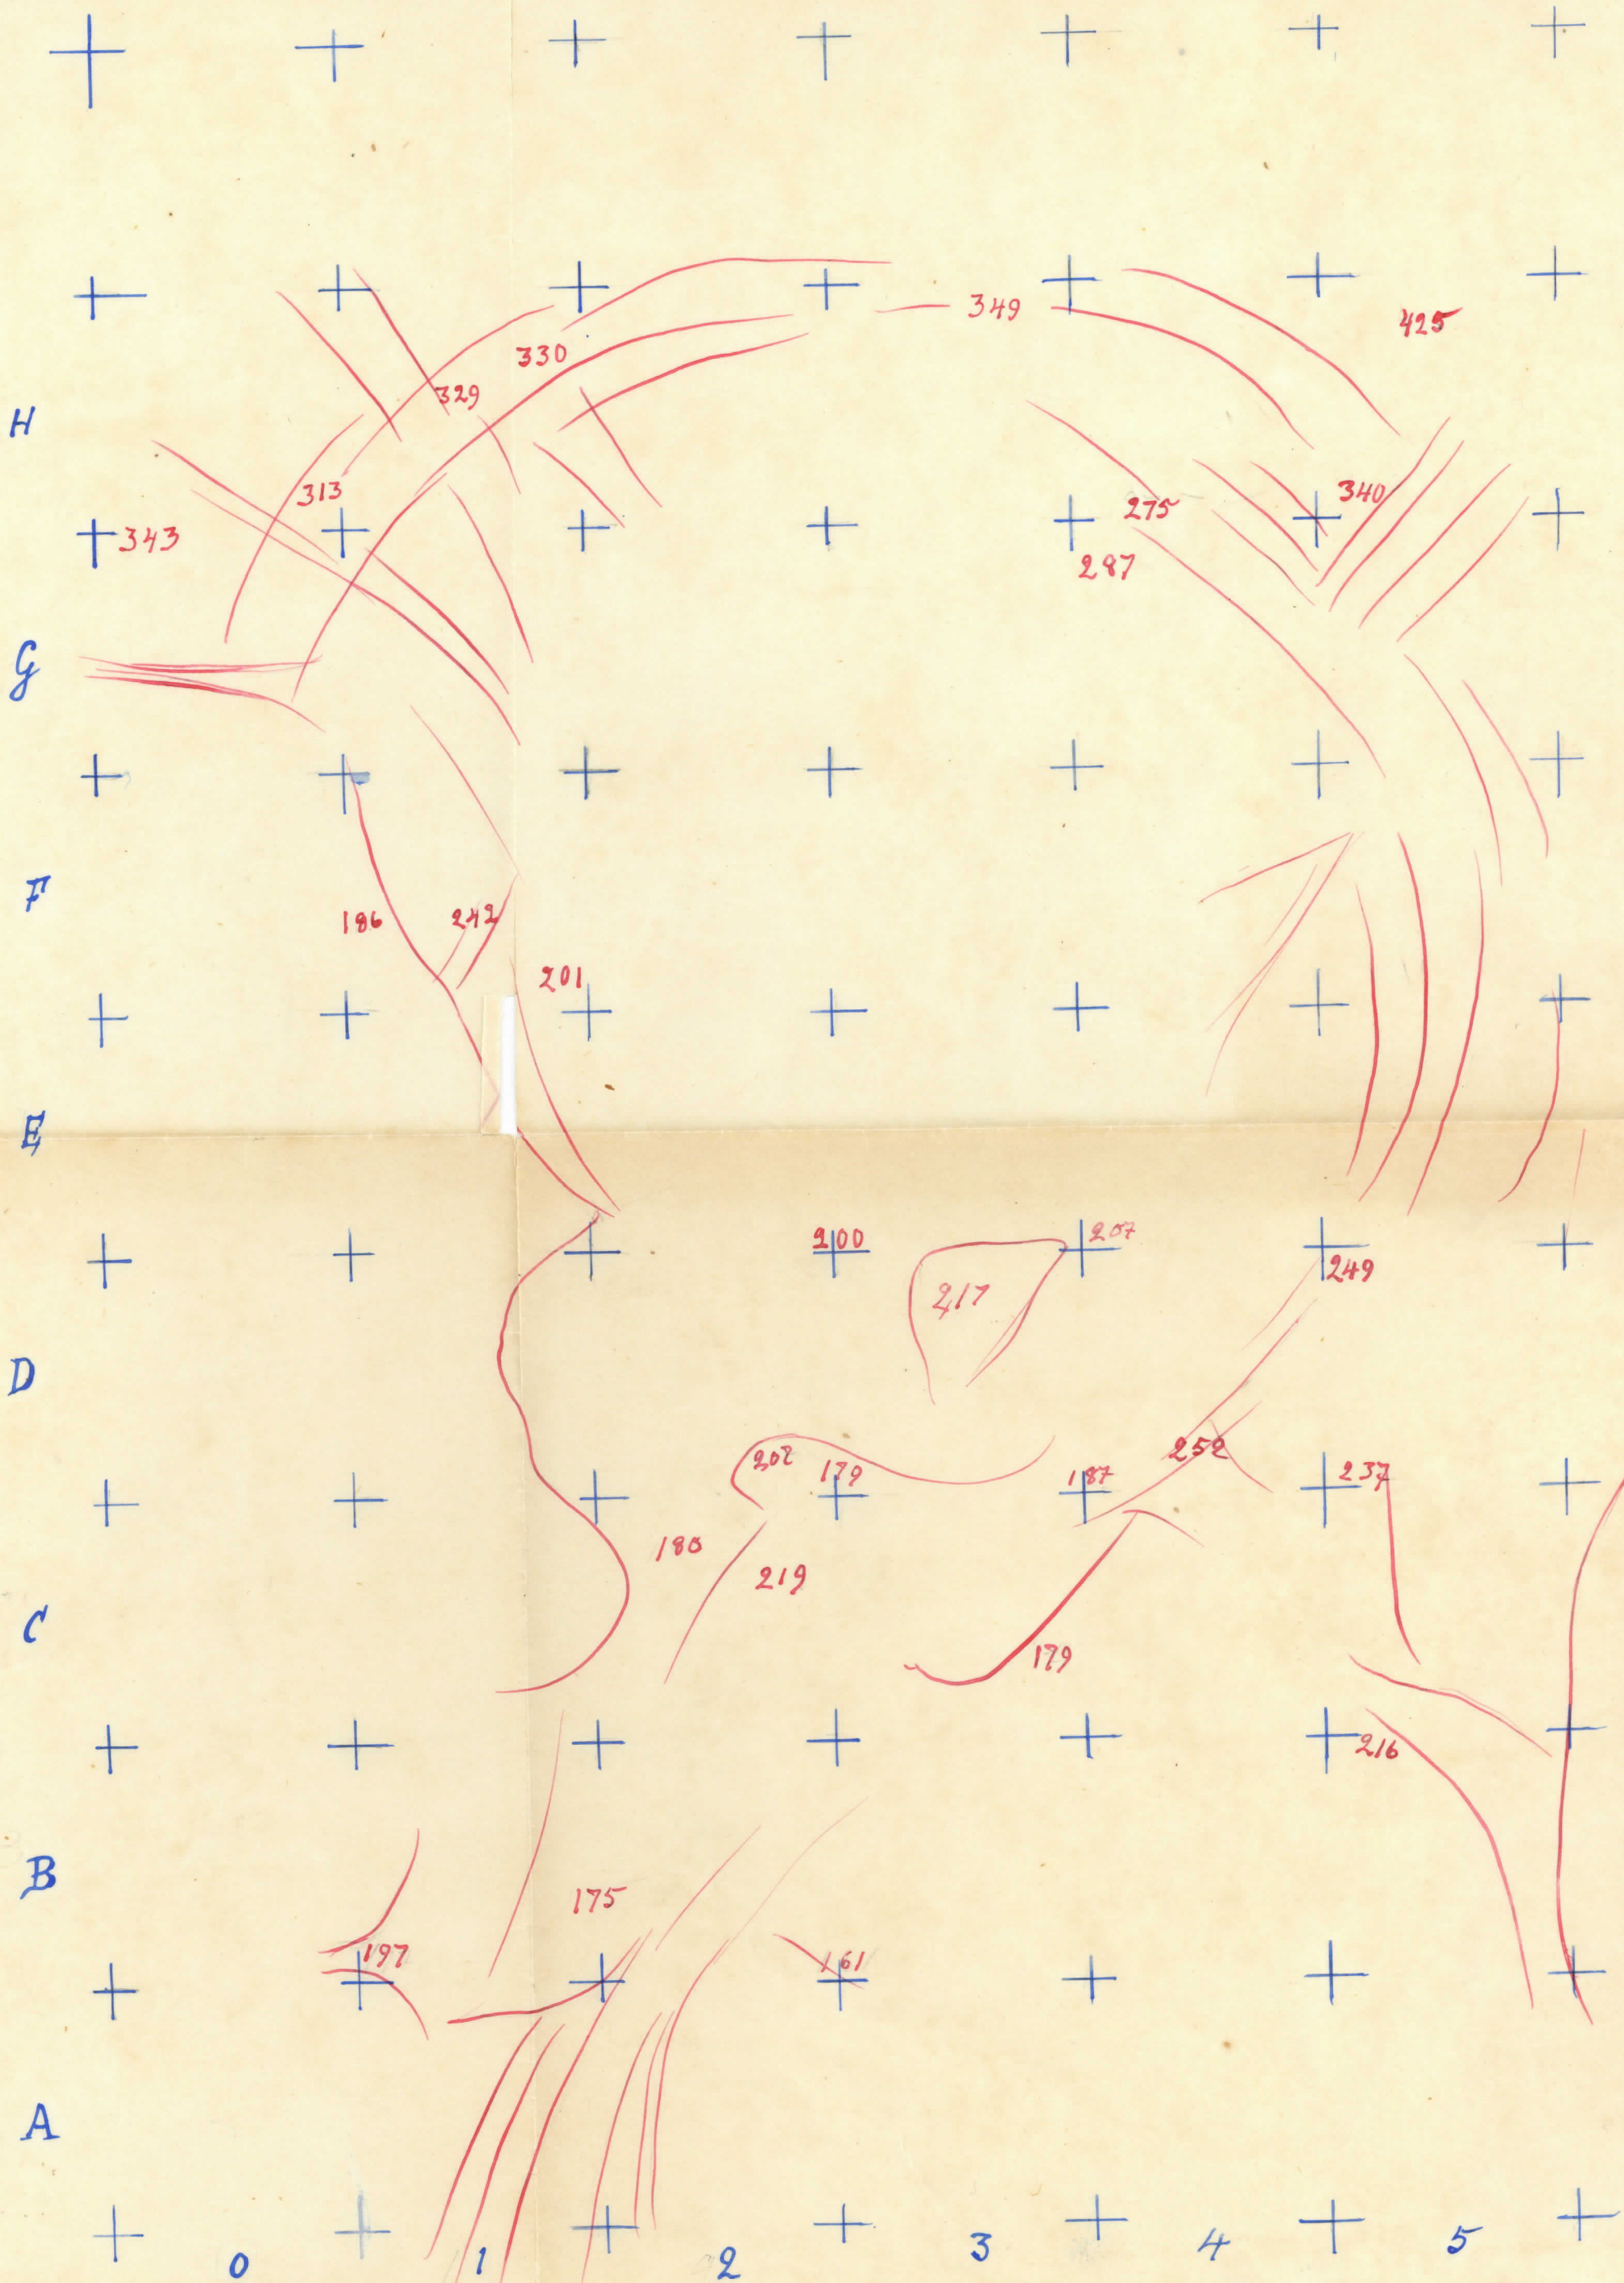 349
425
330
329
H
313
340
275
343
287
G
F
186
242
201
E
200
207
217
249
D
252
202
179
187
237
180
219
C
179
216
B
175
197
161
A
0 1 2 3 4 5